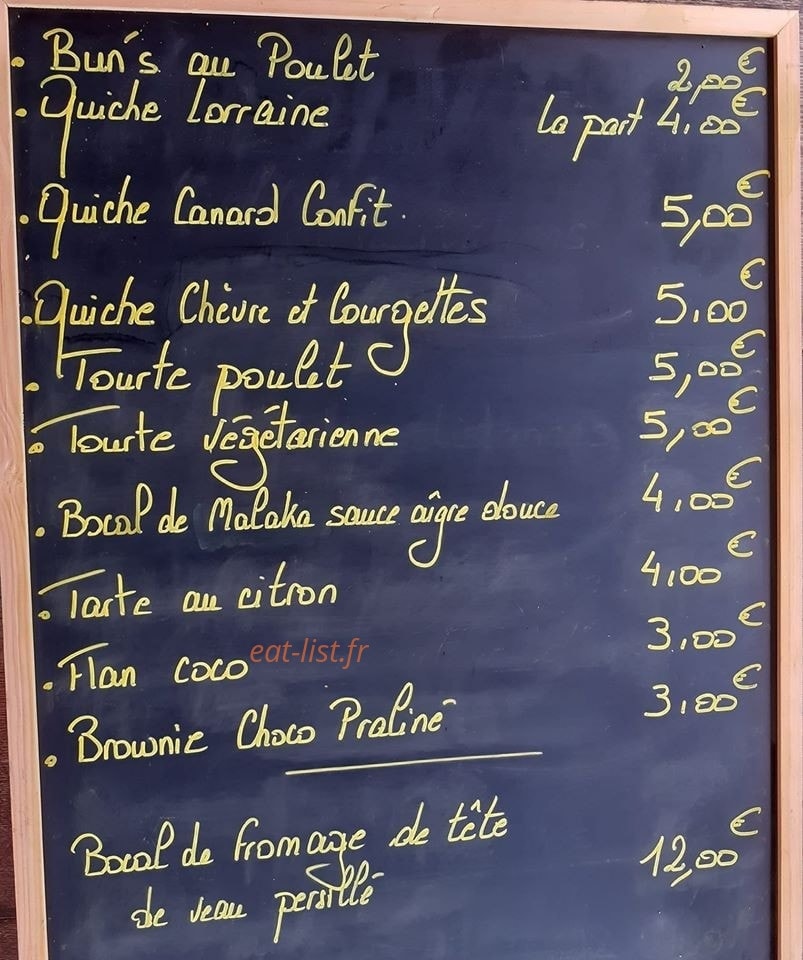 . Bun's au Poulet 2,00€
. Quiche Lorraine la part 4,00€
. Quiche Canard Confit. 5,00€
. Quiche Chèvre et Courgettes 5,00€
. Tourte poulet 5,00€
. Tourte végétarienne 5,00€
. Bocal de Malaka sauce aîgre douce 4,00€
. Tarte au citron 4,00€
. Flan coco 3,00€
eat-list.fr
. Brownie Choco Praliné 3,00€
Bocal de fromage de tête 12,00€
de veau persillé